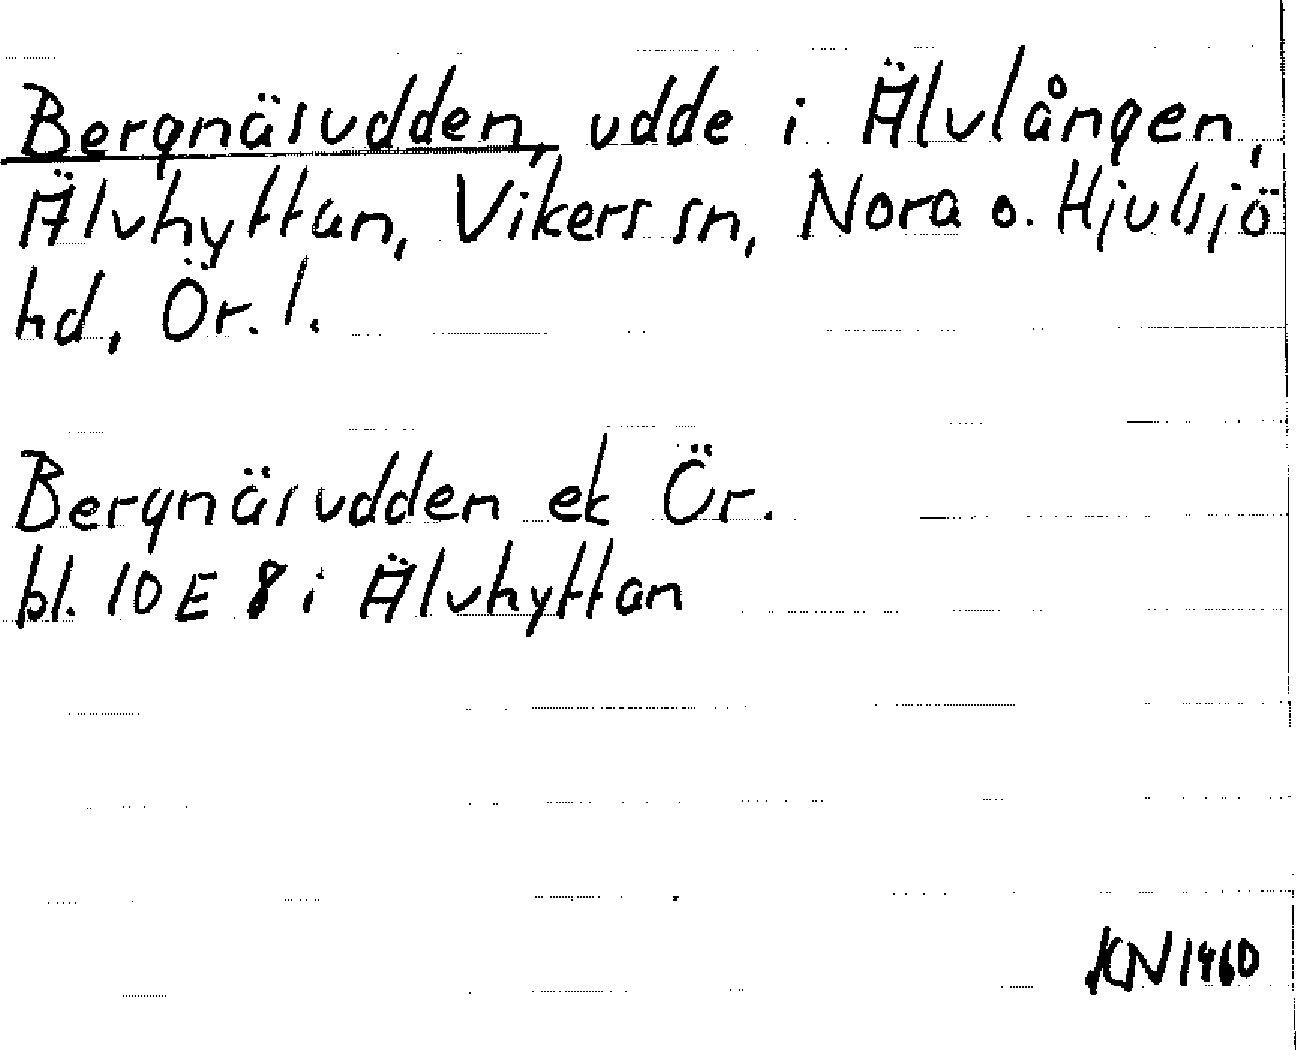 Bergnäsudden, udde i Älvlången,
Älvhyttan, Vikers sn, Nora o. Hjulsjö
hd, Ör. l.
Bergnäsudden ek Ör.
bl. 10E 8 i Älvhyttan
KN 1960